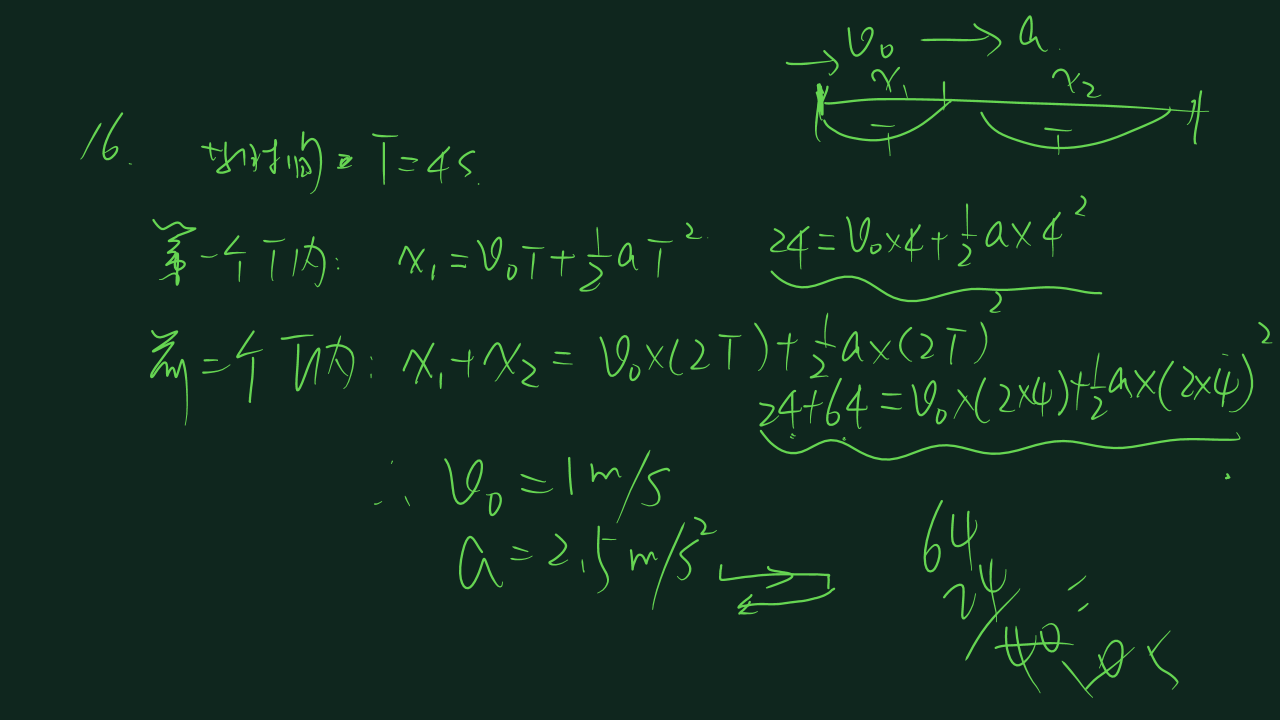 v₀ → a
x₁ x₂
T T
16. 时间 T=4s.
第一个T内: x₁=v₀T+½aT² 24=v₀×4+½a×4²
前二个T内: x₁+x₂=v₀×(2T)+½a×(2T)²
24+64=v₀×(2×4)+½a×(2×4)²
∴ v₀=1m/s
a=2.5m/s²
64
24
40